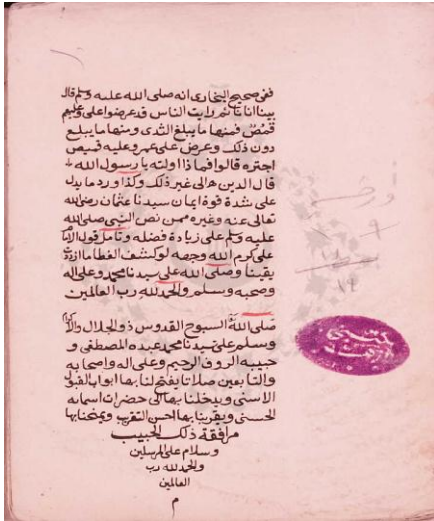 ففي صحيح البخاري انه صلى الله عليه وسلم قال
بينا انا نائم رايت الناس قد عرضوا علي وعليهم
قمص فمنها ما يبلغ الثدي ومنها ما يبلغ
دون ذلك وعرض علي عمر وعليه قميص
اجتره قالوا فما ذا اولته يا رسول الله
قال الدين الى غير ذلك وكذا ورد ما يدل
على شدة قوة ايمان سيدنا عثمان رضي الله
تعالى عنه وغيره ممن نص النبي صلى الله
عليه وسلم على زيادة فضله وتامل قول الامام
علي كرم الله وجهه لو كشف الغطا ما ازددت
يقينا وصلى الله على سيدنا محمد وعلى اله
وصحبه وسلم والحمد لله رب العالمين
صلى الله السبوح القدوس ذو الجلال والاكرام
وسلم على سيدنا محمد عبده المصطفى و
حبيبه الروف الرحيم وعلى اله واصحابه
والتابعين صلاتا يفتح لنا بها ابواب القبول
الاسنى ويدخلنا بها الى حضرات اسمائه
الحسنى ويقربنا بها احسن التقريب ويمنحنا بها
مرافقة ذلك الحبيب
وسلام على المرسلين
والحمد لله رب
العالمين
م